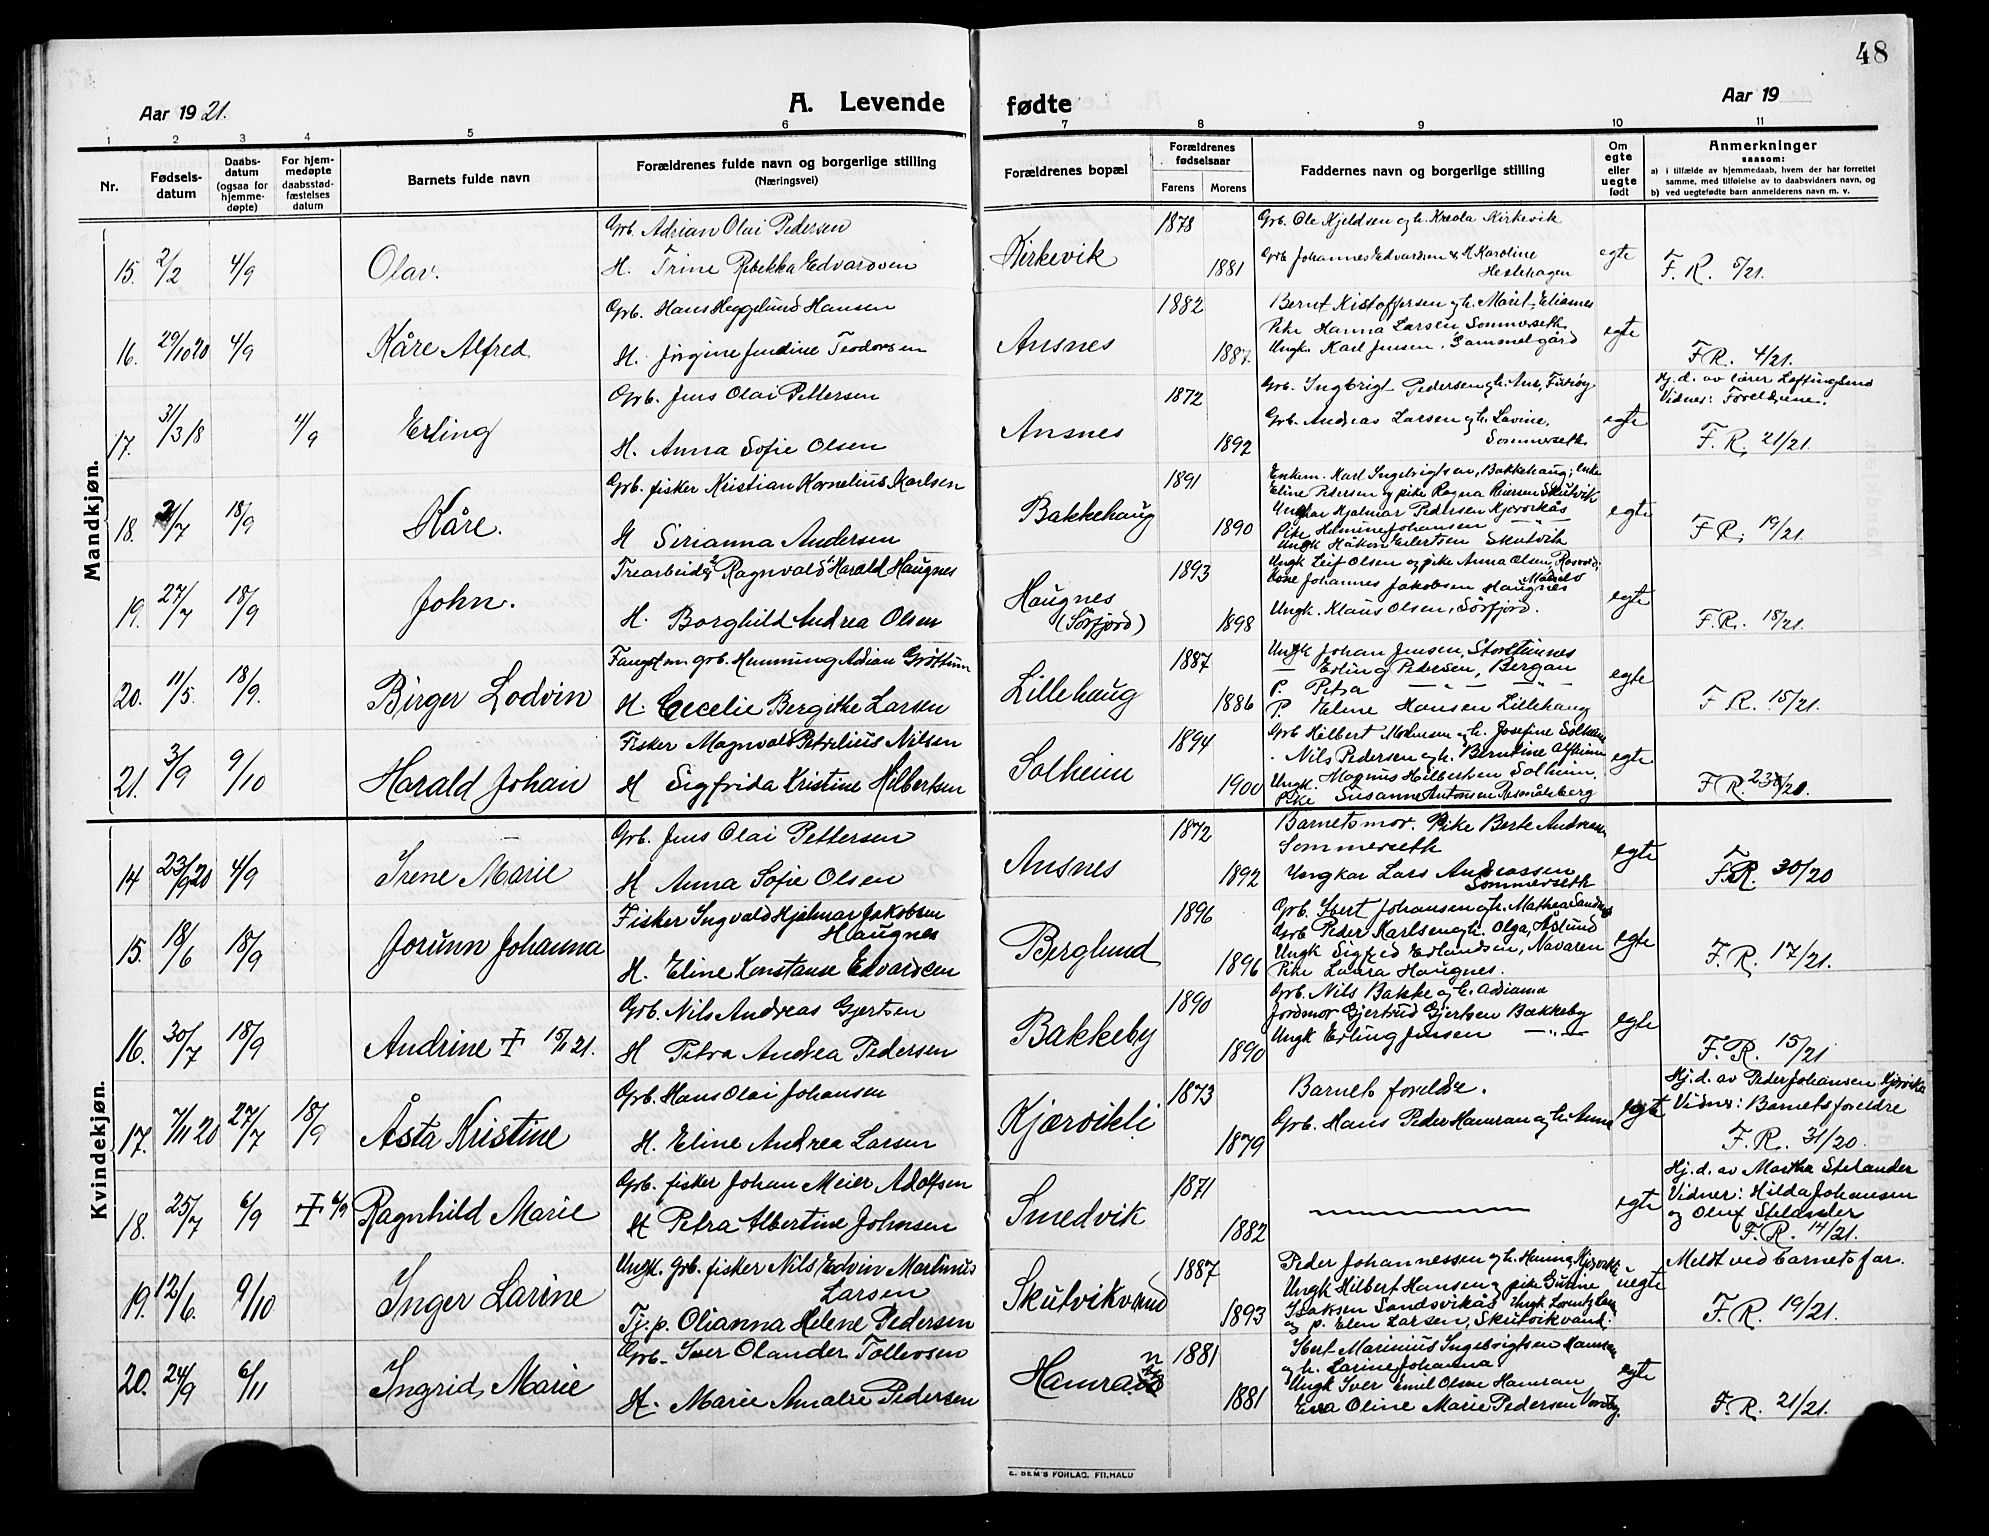 48
Aar 1921.
A. Levende fødte
Aar 19
1 2 3 4 5 6 7 8 9 10 11
Nr.
Fødsels-
datum
Daabs-
datum
(ogsaa for
hjemme-
døpte)
For hjem-
medøpte
daabsstad-
fæstelses
datum
Barnets fulde navn
Forældrenes fulde navn og borgerlige stilling
(Næringsvei)
Forældrenes bopæl
Forældrenes
fødselsaar
Farens Morens
Faddernes navn og borgerlige stilling
Om
egte
eller
uegte
født
Anmerkninger
saasom:
a) i tilfælde av hjemmedaab, hvem der har forrettet
samme, med tilføielse av to daabsvidners navn, og
b) ved uegtefødte barn anmelderens navn m. v.
Mandkjøn.
Grb. Adrian Olai Pedersen 1878 Grb. Ole Kjeldsen og h. Kirkevik
15. 2/2 4/9 Olav. Kirkevik Grb Johannes Edvardsen & H. Karoline egte
H. Trine Rebekka Edvardsen 1881 Hestehagen F. R. 5/21.
Grb. Hans Heggelund Hansen 1882 Bernt Kistoffersen og h. Marit Eliasnes
16. 29/10 20 4/9 Kåre Alfred Ansnes Pike Hanna Larsen Sommerseth egte
H. Jørgine Jendine Teodorsen 1887. Ungk. Karl Jensen, Gammelgård F R. 4/21.
Grb. Jens Olai Pettersen 1872 Grb. Ingbrigt Pedersen og h. Ane, Hj. d. av lærer
Vidner: Foreldrene.
17. 31/3 18 4/9 Erling Ansnes Grb. Andreas Larsen og h. Lovine, egte
H. Anna Sofie Olsen 1892 Sommerseth F. R. 21/21.
Grb. fisker Kristian Kornelius Karlsen 1891 Enkem. Karl Ingebrigtsen, Bakkehaug; enke
Eline Pedersen og pike Ragna Skutvik
18. 2/7 18/9 Kåre. Bakkehaug Ungkar Hjalmar Pedersen egte
H Sirianna Andersen 1890 Pike Helmine Johansen
Ungk Håkon Skutvik F R. 19/21.
Trearbeider Ragnvald Harald Haugnes 1893 Ungk Leif Olsen og pike Anna Olsen,
Kone Johannes Jakobsen Haugnes
19. 27/7 18/9 John. Haugnes egte
(Sørfjord) Ungk. Klaus Olsen, Sørfjord.
H. Borghild Andrea Olsen 1898 F. R. 18/21.
Fangstm. grb. Henning Adrian Grøttum 1887 Ungk Johan Jensen,
— Erling Pedersen, Bergan
20. 11/5. 18/9. Birger Lodvin Lillehaug P. Petra — " — egte
H. Cecelie Bergithe Larsen 1886 P. Eline Hansen Lillehaug F R. 15/21.
Fisker Magnvald Petrelius Nilsen 1894 Grb Hilbert og h. Josefine Solheim
. Nils Pedersen og h. Berntine
21. 3/9 9/10 Harald Johan Solheim Ungk. Magnus Hilbertsen Solheim. egte
H Sigfrida Kristine Hilbertsen 1900 Pike Susanne Antonsen F R.
Kvindekjøn.
Grb. Jens Olai Pettersen 1872 Barnets mor. Pike Berte Andreasen
Sommerseth
14 23/9 20 4/9 Irene Marie Ansnes egte
H Anna Sofie Olsen 1892 Ungkar Lars Andreassen
Sommerseth F. R. 30/20
Fisker Ingvald Hjalmar Jakobsen 1896 Grb. Johansen og h. Mathea
Haugnes Grb Peder Karlsen og h. Olga,
15. 18/6 18/9 Jorunn Johanna Berglund Ungk Sigfred Erlandsen, Navaren egte
H. Eline Konstanse Edvardsen 1896 Pike Laura Haugnes. F. R. 17/21.
Grb. Nils Andreas Gjertsen 1890 Grb. Nils Bakke og h. Adriana
Jordmor Gjertrud Gjertsen Bakkeby
16. 30/7 18/9 Andrine † 15/11 21. Bakkeby Ungk Erling Jensen — " — egte
H Petra Andrea Pedersen 1890 F. R. 15/21
Grb. Hans Olai Johansen 1873 Barnets foreldre. Hj. d. av Peder Johansen
17. 7/11 20 27/7 18/9 Åsta Kristine Kjærvikli Grb. Hans Peder Hamran og h. Anna egte Vidner: Barnets foreldre
H. Eline Andrea Larsen 1879 F. R. 31/20.
Grb. fisker Johan Meier Adolfsen 1871 Hj. d. av Martha Stelander
18. 25/7 6/9 † 6/9 Ragnhild Marie Smedvik — egte Vidner: Hilda Johansen
H Petra Albertine Johnsen 1882 og Oluf Stelander
F. R. 14/21.
Ungk. Grb. fisker Nils Edvin Martinus 1887 Peder Johannessen og h. Hanna Meldt ved barnets far.
Larsen Ungk Hilbert Hansen og pike Gurine uegte
19. 12/6. 9/10 Inger Larine Skutvikvand Isaksen Sandsvikås Ungk Lorentz
Tj. p. Olianna Helene Pedersen 1893 og p. Elen Larsen, Skutvikvand. F. R. 19/21.
Grb. Iver Olander Tollevsen 1881 Marinius Ingebrigtsen
og h. Larine Johanna
20. 24/9 6/11 Ingrid Marie Hamran Ungk Iver Emil Olsen Hamran egte
H. Marie Amalie Pedersen 1881 Eva Oline Marie Pedersen F. R. 21/21.
E. SEM'S FORLAG. FR.HALD